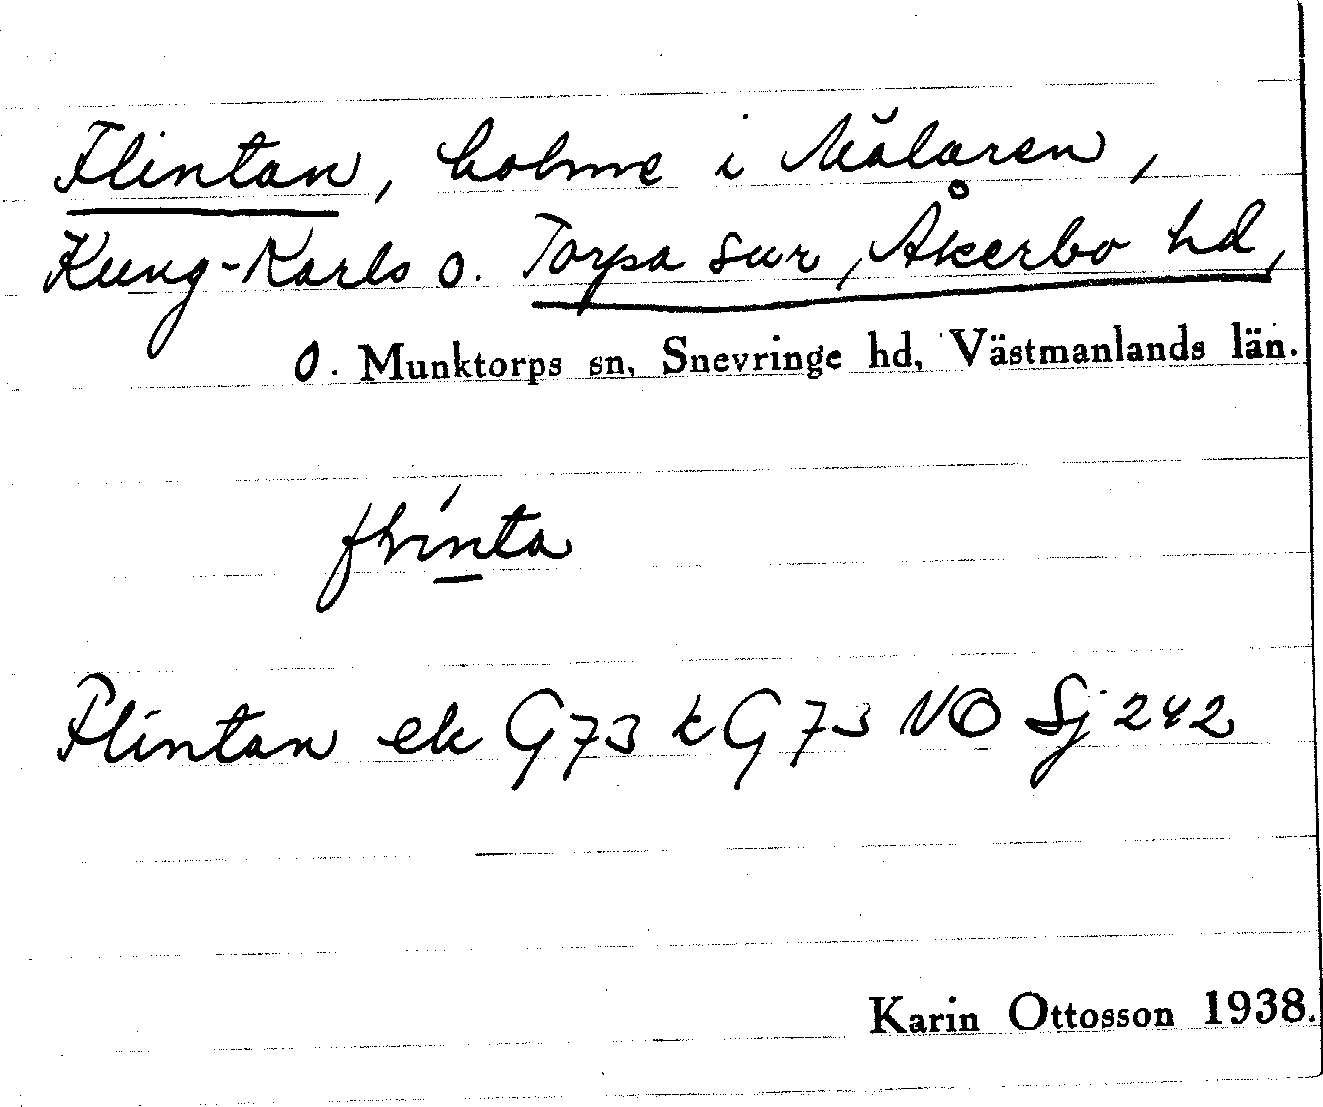 Flintan, holme i Mälaren,
Kung-Karls o. Torpa snr, Åkerbo hd,
o. Munktorps sn, Snevringe hd, Västmanlands län.
flinta
Flintan ek G73 k G73 NO Sj 242
Karin Ottosson 1938.